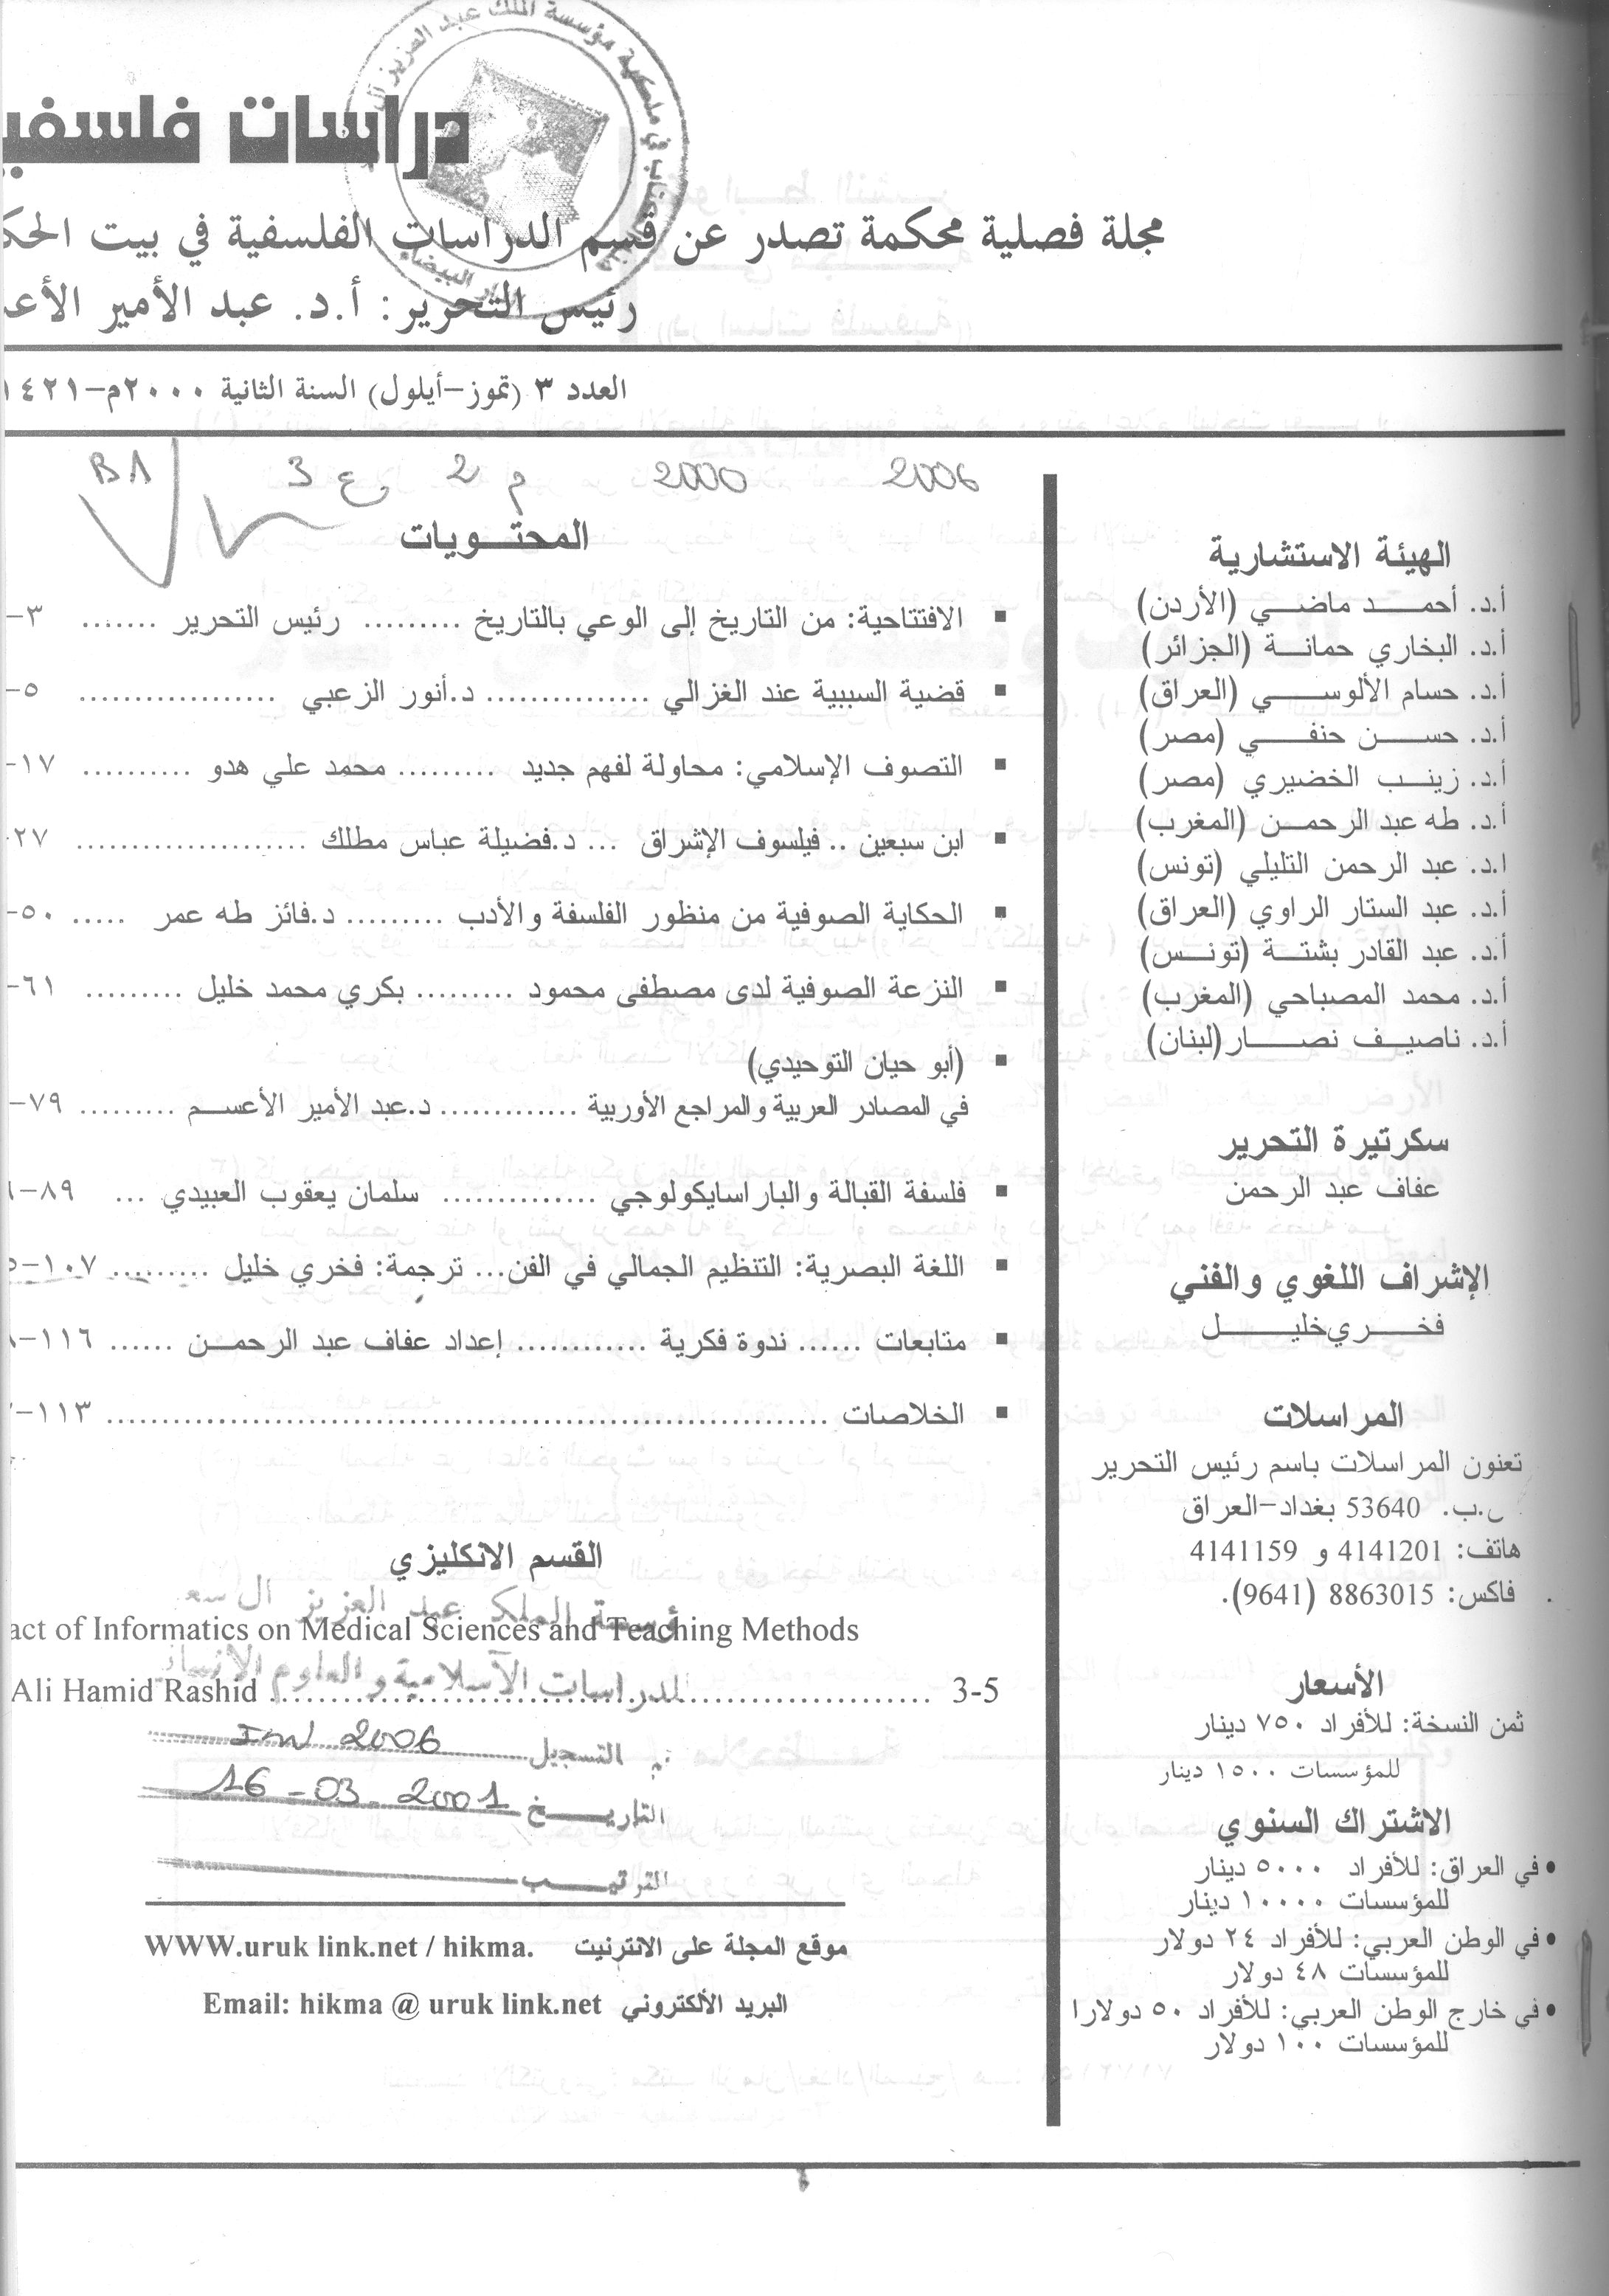 دراسات فلسفي
مجلة فصلية محكمة تصدر عن قسم الدراسات الفلسفية في بيت الحك
رئيس التحرير: أ.د. عبد الأمير الأعس
العدد ٣ (تموز-أيلول) السنة الثانية ٢٠٠٠م-١٤٢١
2006 2000 م 2 ع 3 BA
الهيئة الاستشارية
أ.د. أحمـــد ماضـــي (الأردن)
أ.د. البخاري حمانــة (الجزائر)
أ.د. حسام الألوســـي (العراق)
أ.د. حســـن حنفـــي (مصر)
أ.د. زينــب الخضيري (مصر)
أ.د. طه عبد الرحمــن (المغرب)
ا.د. عبد الرحمن التليلي (تونس)
أ.د. عبد الستار الراوي (العراق)
أ.د. عبد القادر بشتــة (تونــس)
أ.د. محمد المصباحي (المغرب)
أ.د. ناصيــف نصـــار(لبنان)
سكرتيرة التحرير
عفاف عبد الرحمن
الإشراف اللغوي والفني
فخـــري خليـــل
المراسلات
تعنون المراسلات باسم رئيس التحرير
ص.ب. 53640 بغداد-العراق
هاتف: 4141201 و 4141159
فاكس: 8863015 (9641).
الأسعار
ثمن النسخة: للأفراد ٧٥٠ دينار
للمؤسسات ١٥٠٠ دينار
الاشتراك السنوي
• في العراق: للأفراد ٥٠٠٠ دينار
للمؤسسات ١٠٠٠٠ دينار
• في الوطن العربي: للأفراد ٢٤ دولار
للمؤسسات ٤٨ دولار
• في خارج الوطن العربي: للأفراد ٥٠ دولارا
للمؤسسات ١٠٠ دولار
المحتــويات
▪ الافتتاحية: من التاريخ إلى الوعي بالتاريخ ......... رئيس التحرير ....... ٣-
▪ قضية السببية عند الغزالي ............... د.أنور الزعبي .................. ٥-
▪ التصوف الإسلامي: محاولة لفهم جديد ......... محمد علي هدو .......... ١٧-
▪ ابن سبعين .. فيلسوف الإشراق ... د.فضيلة عباس مطلك ..................... ٢٧-
▪ الحكاية الصوفية من منظور الفلسفة والأدب ......... د.فائز طه عمر ..... ٥٠-
▪ النزعة الصوفية لدى مصطفى محمود ......... بكري محمد خليل ......... ٦١-
▪ (أبو حيان التوحيدي)
في المصادر العربية والمراجع الأوربية ............. د.عبد الأمير الأعســم ......... ٧٩-
▪ فلسفة القبالة والباراسايكولوجي .............. سلمان يعقوب العبيدي ... ٨٩-
▪ اللغة البصرية: التنظيم الجمالي في الفن... ترجمة: فخري خليل ......... ١٠٧-
▪ متابعات ...... ندوة فكرية ............ إعداد عفاف عبد الرحمــن ...... ١١٦-
▪ الخلاصات .................................................................. ١١٣-
القسم الانكليزي
ؤسسة الملك عبد العزيز ال سعـ
act of Informatics on Medical Sciences and Teaching Methods
للدراسات الآسلامية والعلوم الإنسانيـ
Ali Hamid Rashid .............................................................. 3-5
التسجيل IW 2006
التاريــخ 16-03-2001
الترقيــب
موقع المجلة على الانترنيت WWW.uruk link.net / hikma.
البريد الألكتروني Email: hikma @ uruk link.net